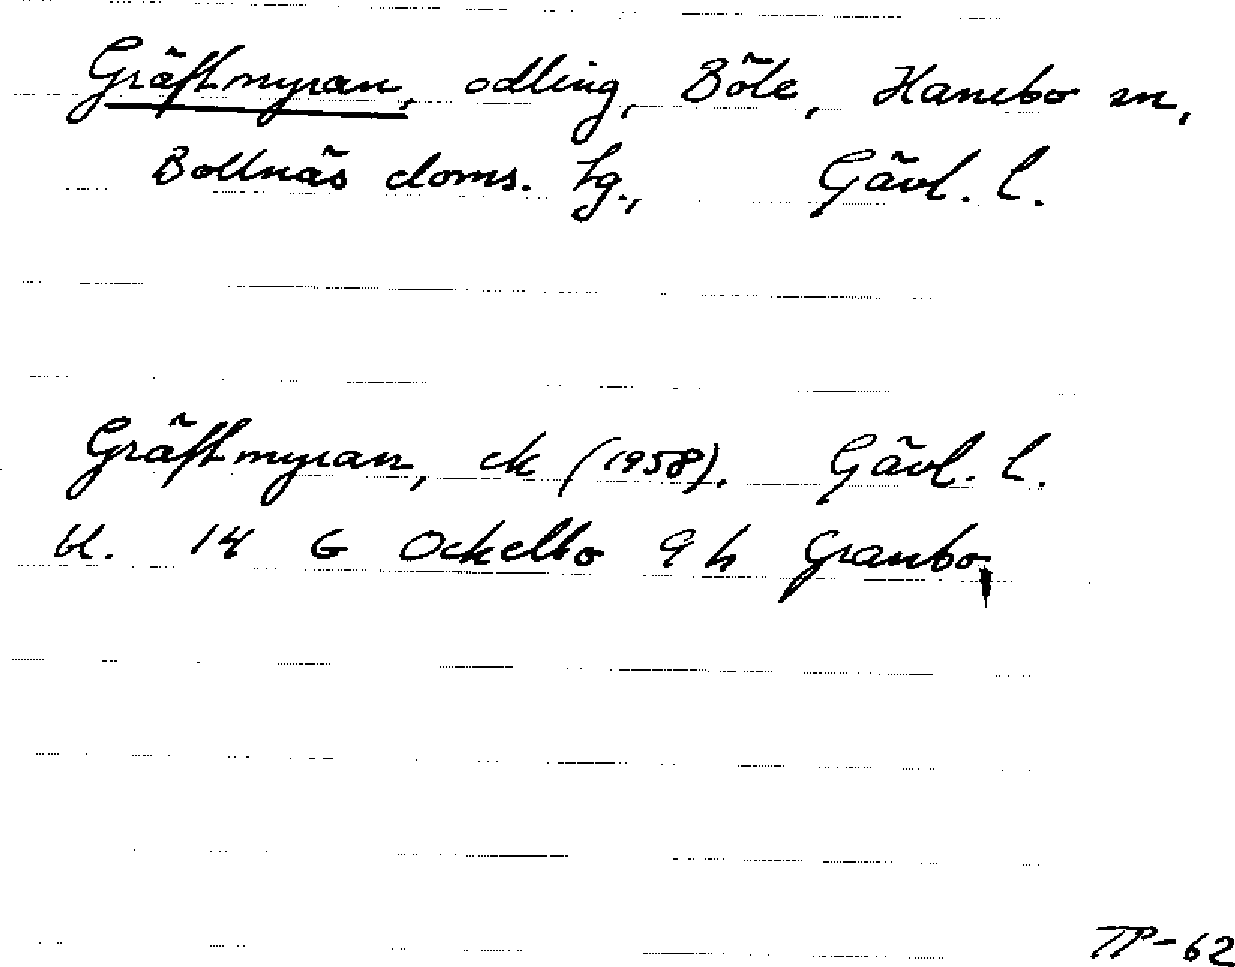 Gräftmyran, odling, Böle, Hanebo sn,
Bollnäs doms. tg., Gävl. l.
Gräftmyran, ek (1958). Gävl. l.
bl. 14 G Ockelbo 9 h Granbo,
TP-62